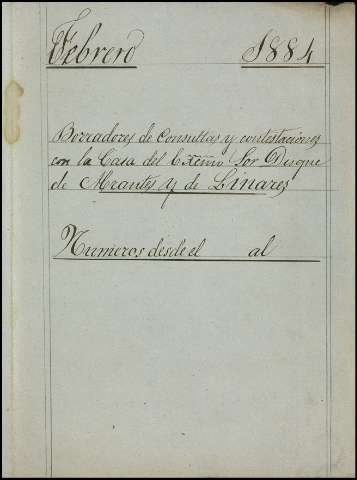 Febrero 1884
Borradores de Consultas y contestaciones
con la Casa del Exmo Sor Duque
de Abrantes y de Linares
Numeros desde el al